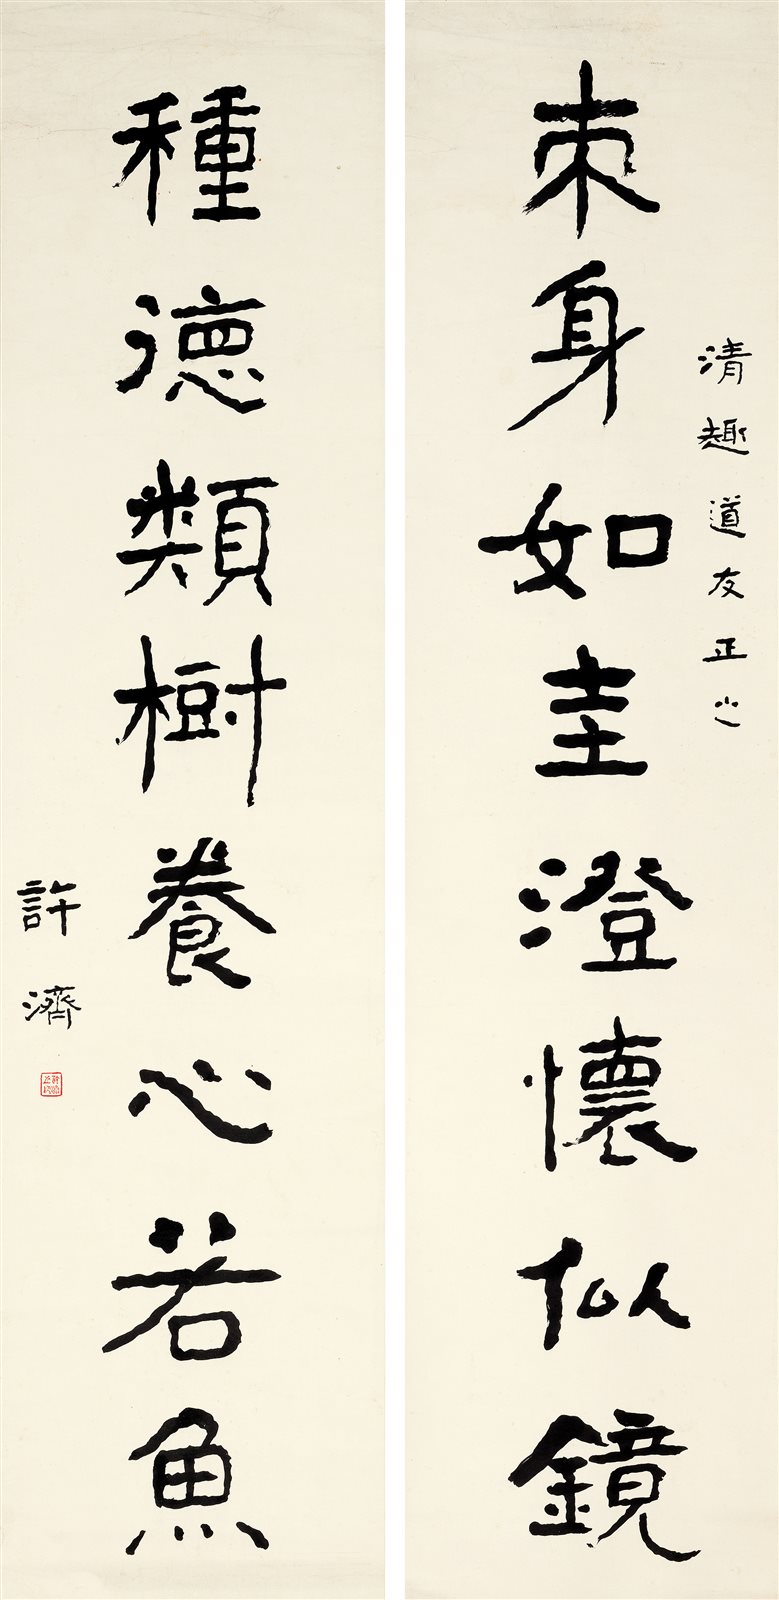 清趣道友正之
束身如圭澄懷似鏡
種德類樹養心若魚
許濟